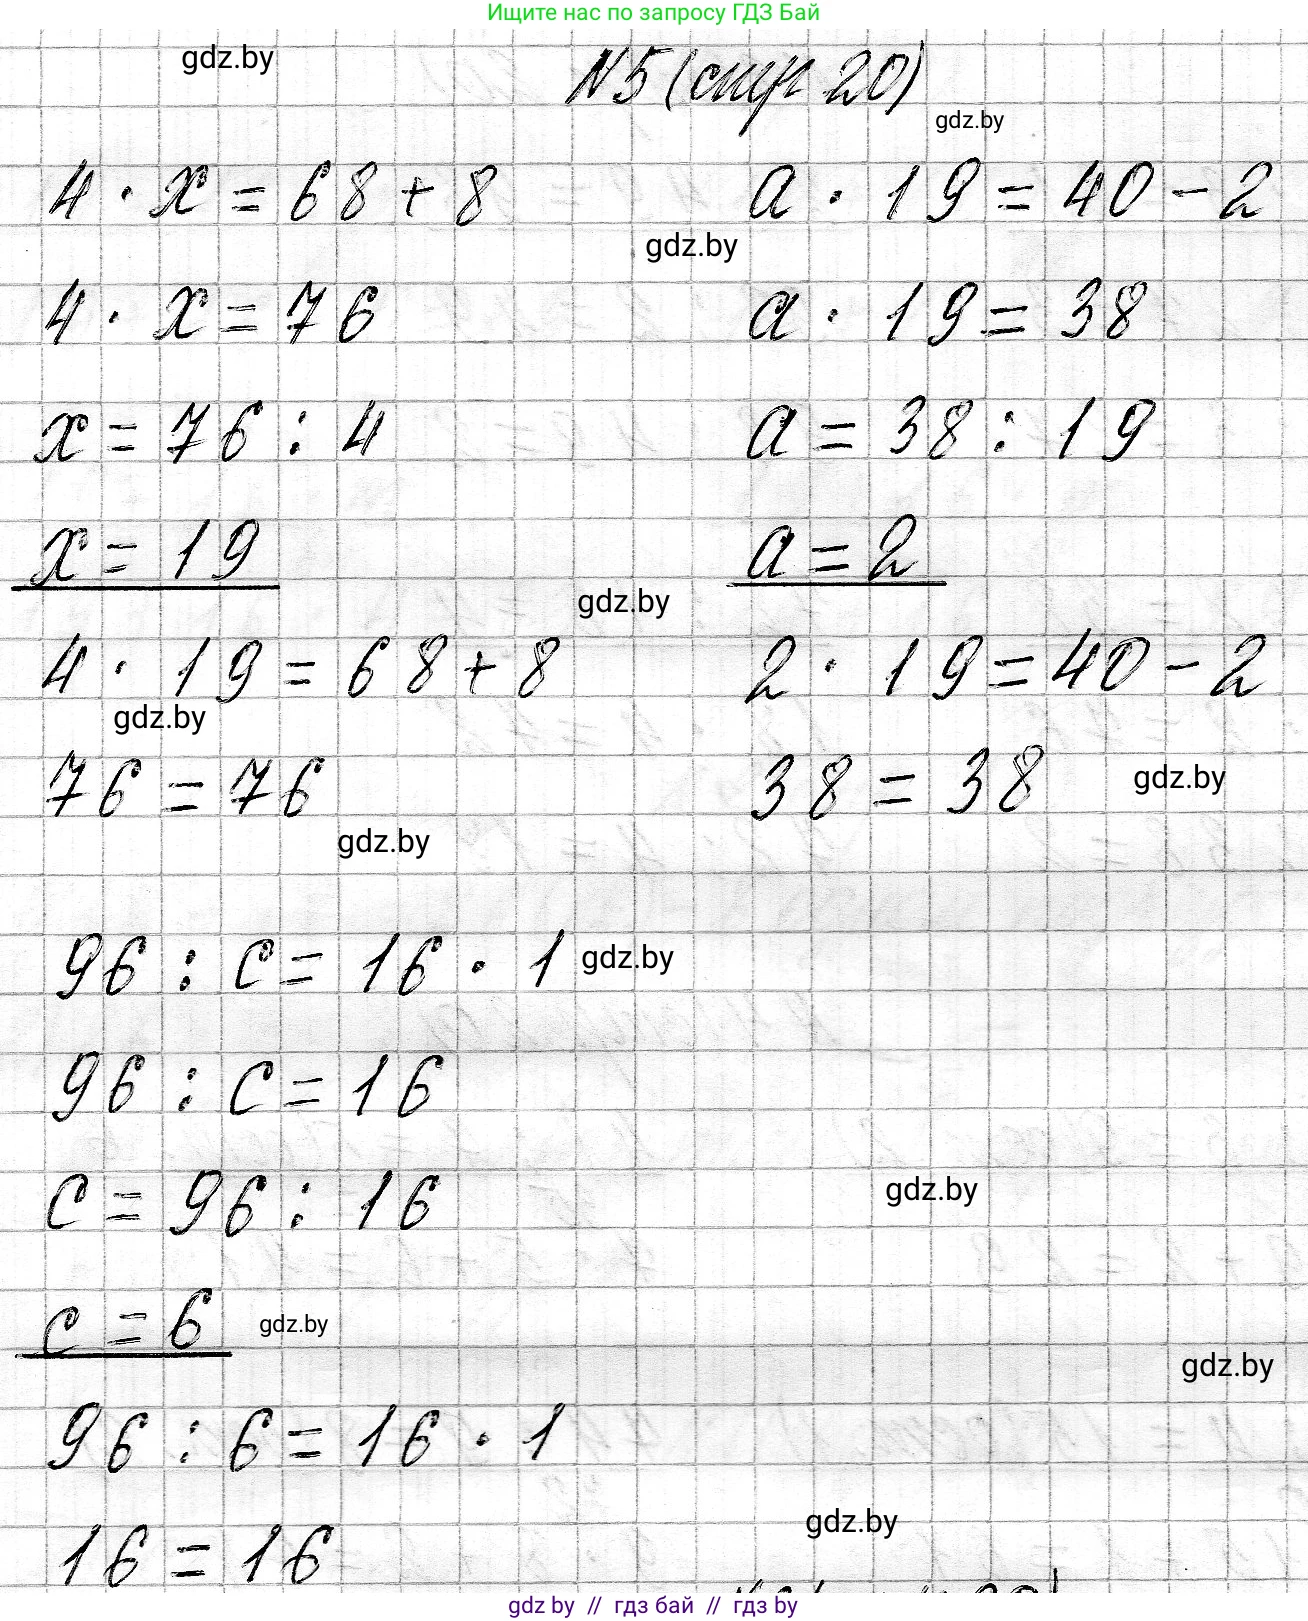 Ищите нас по запросу ГДЗ Бай
gdz.by
№5 (стр 20)
gdz.by
4 · x = 68 + 8
a · 19 = 40 - 2
gdz.by
4 · x = 76
a · 19 = 38
x = 76 : 4
a = 38 : 19
x = 19
a = 2
gdz.by
4 · 19 = 68 + 8
2 · 19 = 40 - 2
gdz.by
76 = 76
38 = 38
gdz.by
gdz.by
96 : c = 16 · 1
gdz.by
96 : c = 16
c = 96 : 16
gdz.by
c = 6
gdz.by
gdz.by
96 : 6 = 16 · 1
gdz.by
16 = 16
gdz by // гдз бай // гдз by